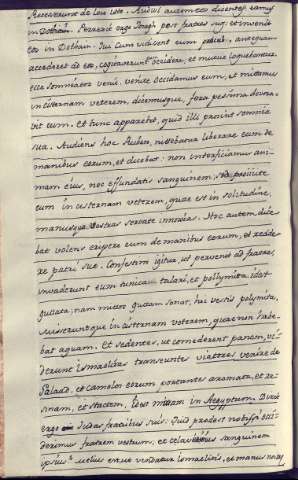 Recesserunt de loco isto. Audivi autem eos dicentes eamus
in Dothain. Perrexit ergo Joseph post fratres suos et invenit
eos in Dothain. Qui cum vidissent eum procul, antequam
accederet ad eos, cogitaverunt occidere, et mutuo loquebantur.
ecce somniator venit. venite occidamus eum, et mittamus
in cisternam veterem, dicemusque, fera pessima devora-
vit eum. et tunc apparebit, quid illi prosint somnia
sua. Audiens hoc Ruben, nitebatur liberare eum de
manibus eorum, et dicebat: non interficiamus ani-
mam eius, nec effundatis sanguinem, sed proiicite
eum in cisternam veterem, quae est in solitudine,
manusque vestras servate innoxias. Hoc autem dice-
bat volens eripere eum de manibus eorum, et redde-
re patri suo. Confestim igitur, ut pervenit ad fratres,
invaserunt eum tunica talari, et polymita, idest
guttata; nam mitos guttam sonat, hoc vestis polymita,
miseruntque in cisternam veterem, quae non habe-
bat aquam. Et sedentes, ut comederent panem, vi-
derunt ismaelitas transeuntes viatores venire de
Galaad, et camelos eorum portantes aromata, et re-
sinam, et stactem, in Aegyptum. Dixit
ergo Iudas fratribus suis. Quid prodest nobis si occi-
derimus fratrem vestrum, et celaverimus sanguinem
ipsius? melius est ut vendatur ismaelitis, et manus nostrae